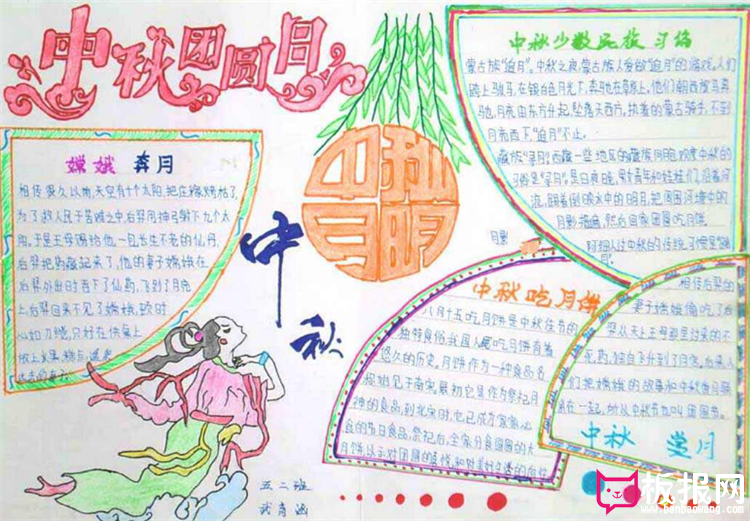 中秋团圆日
嫦娥奔月
相传很久以前,天空有十个太阳,把庄稼烤枯了,
为了救人民于苦难之中,后羿用神弓射下九个太
阳。于是王母赐给他一包长生不老的仙丹,
后羿把药藏起来了,他的妻子嫦娥在
后羿外出时吞下了仙药,飞到了月宫
上后羿回来不见了嫦娥,顿时
心如刀绞,只好在供桌上
放上水果、糕点,遥
中秋
中秋
月明
中秋少数民族习俗
蒙古族"追月"。中秋之夜,蒙古族人爱做"追月"的游戏。人们
跨上骏马,在银白色月光下,奔驰在草原上。他们朝西放马奔
驰,月亮由东方升起,坠落天西方。执着的蒙古骑手,不到
月亮西下,"追月"不止。
藏族"寻月"。西藏一些地区的藏族同胞欢度中秋的
习俗是"寻月"。是日夜晚,男女青年和娃娃们,沿着河
流,跟着倒映水中的明月,把周围河塘中的
月影,然后回家团圆吃月饼
月影
中秋吃月饼
八月十五吃月饼是中秋佳节的
独特食俗,我国人吃月饼有着
悠久的历史。月饼作为一种食品名
称始见于南宋,最初它是作为祭祀月
神的食品,到北宋时,它已成为家家必
食的节日食品,祭祀后,全家分食圆圆的大
相传后羿的
妻子嫦娥偷吃了后
羿从天上王母那里讨来的不
死药,独自飞升到了月宫。后来人
们把嫦娥的故事和中秋
在一起,所以中秋节也叫团圆节。
中秋赏月
五二班
板报网
www.banbaowang.com